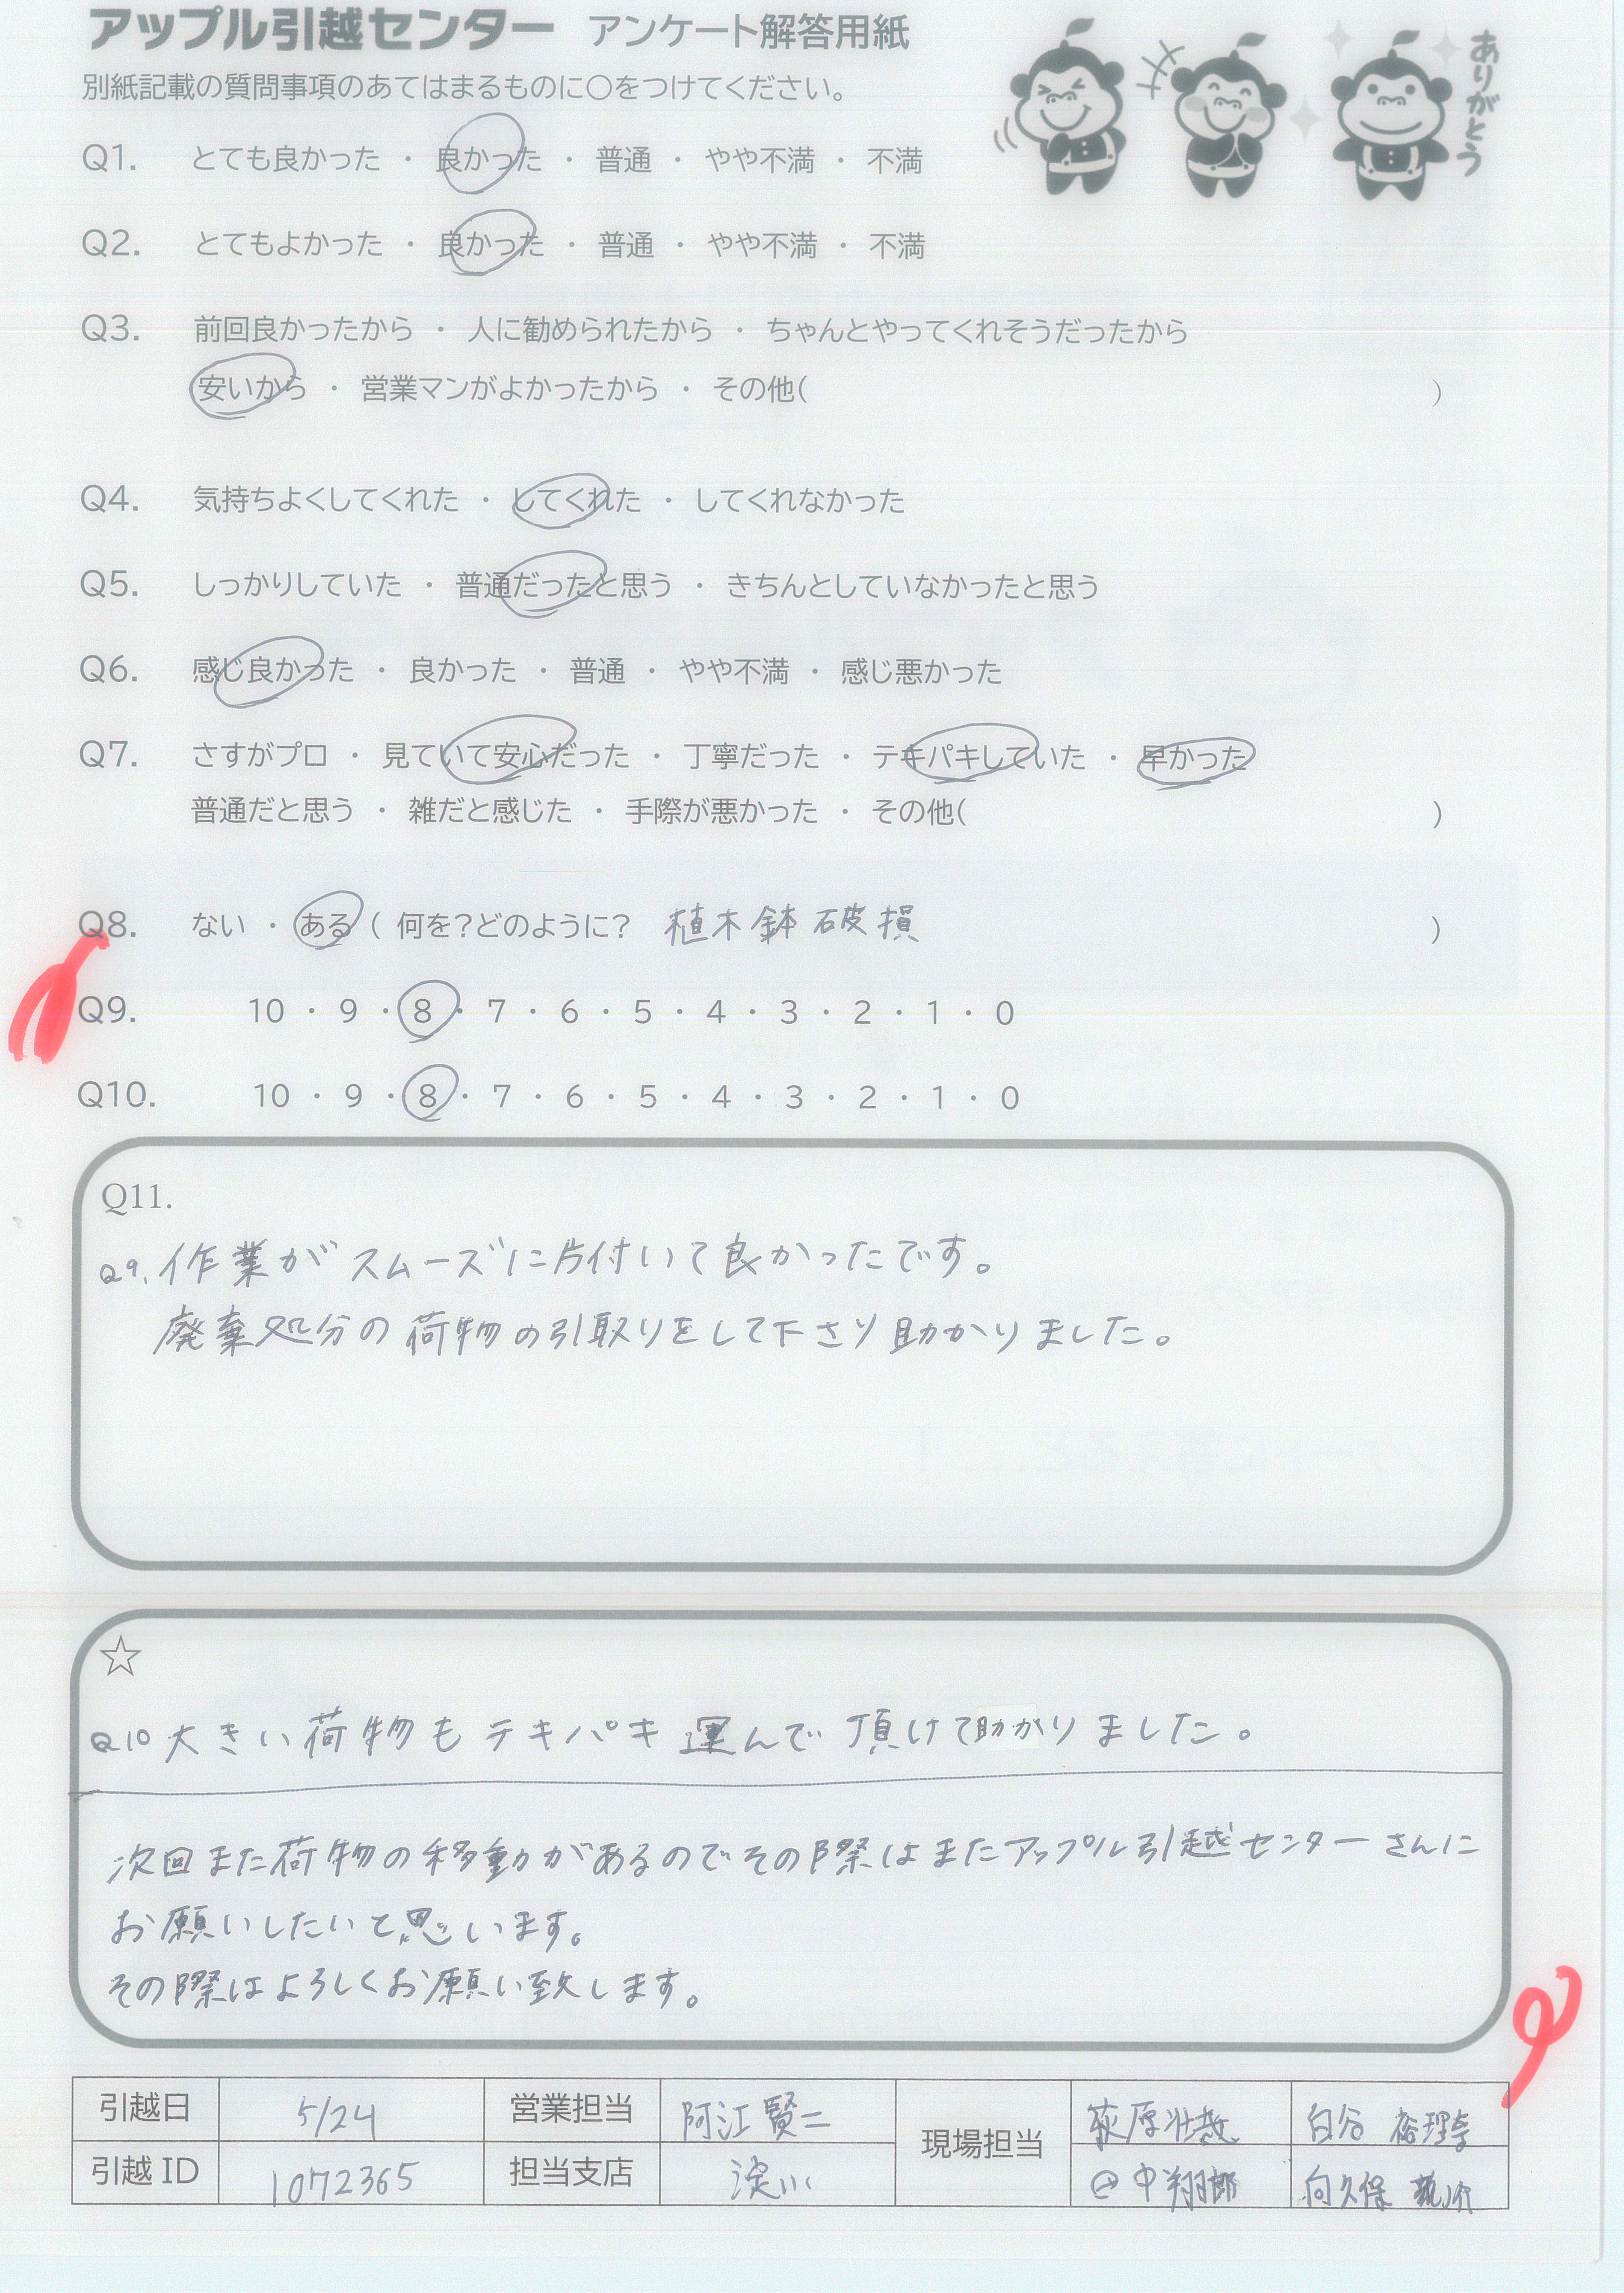 アップル引越センター アンケート解答用紙
ありがとう
別紙記載の質問事項のあてはまるものに○をつけてください。
Q1. とても良かった ・ 良かった ・ 普通 ・ やや不満 ・ 不満
Q2. とてもよかった ・ 良かった ・ 普通 ・ やや不満 ・ 不満
Q3. 前回良かったから ・ 人に勧められたから ・ ちゃんとやってくれそうだったから
安いから ・ 営業マンがよかったから ・ その他( )
Q4. 気持ちよくしてくれた ・ してくれた ・ してくれなかった
Q5. しっかりしていた ・ 普通だったと思う ・ きちんとしていなかったと思う
Q6. 感じ良かった ・ 良かった ・ 普通 ・ やや不満 ・ 感じ悪かった
Q7. さすがプロ ・ 見ていて安心だった ・ 丁寧だった ・ テキパキしていた ・ 早かった
普通だと思う ・ 雑だと感じた ・ 手際が悪かった ・ その他( )
Q8. ない ・ ある ( 何を?どのように? 植木鉢破損 )
Q9. 10 ・ 9 ・ 8 ・ 7 ・ 6 ・ 5 ・ 4 ・ 3 ・ 2 ・ 1 ・ 0
Q10. 10 ・ 9 ・ 8 ・ 7 ・ 6 ・ 5 ・ 4 ・ 3 ・ 2 ・ 1 ・ 0
Q11.
Q9. 作業がスムーズに片付いて良かったです。
廃棄処分の荷物の引取りをして下さり助かりました。
☆
Q10 大きい荷物もテキパキ運んで頂けて助かりました。
次回また荷物の移動があるのでその際はまたアップル引越センターさんに
お願いしたいと思います。
その際はよろしくお願い致します。
引越日 5/24 営業担当 阿江賢二 現場担当 荻原壮哉 白谷 裕理奈
引越ID 1072365 担当支店 淀川 中翔郎 向久保